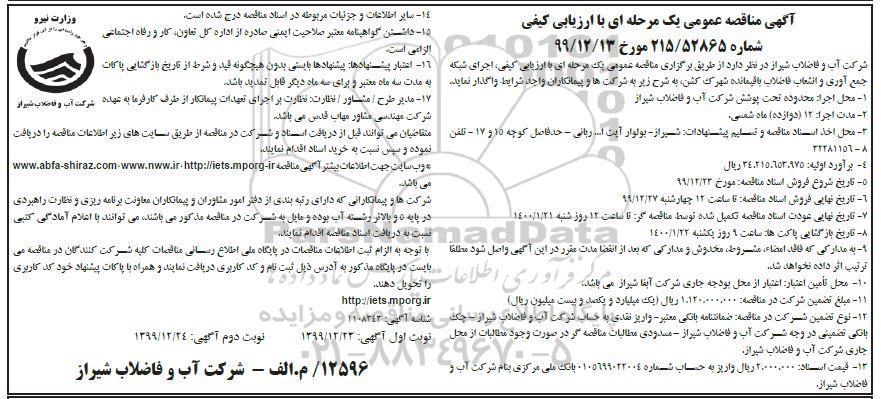 آگهی مناقصه عمومی یک مرحله ای با ارزیابی کیفی
شماره ۲۱۵/۵۲۸۶۵ مورخ ۹۹/۱۲/۱۳
شرکت آب و فاضلاب شیراز در نظر دارد از طریق برگزاری مناقصه عمومی یک مرحله ای با ارزیابی کیفی، اجرای شبکه
جمع آوری و انشعاب فاضلاب باقیمانده شهرک کشن، به شرح زیر به شرکت ها و پیمانکاران واجد شرایط واگذار نماید.
۱- محل اجرا: محدوده تحت پوشش شرکت آب و فاضلاب شیراز
۲- مدت اجرا: ۱۲ (دوازده) ماه شمسی.
۳- محل اخذ اسناد مناقصه و تسلیم پیشنهادات: شیراز- بولوار آیت ا... ربانی - حدفاصل کوچه ۱۵ و ۱۷ - تلفن
۸ - ۳۲۲۸۱۱۵۶
۴- برآورد اولیه: ۳۴.۲۱۵.۶۵۳.۹۷۵ ریال
۵- تاریخ شروع فروش اسناد مناقصه: مورخ ۹۹/۱۲/۲۳
۶- تاریخ نهایی فروش اسناد مناقصه: تا ساعت ۱۲ چهارشنبه ۹۹/۱۲/۲۷
۷- تاریخ نهایی عودت اسناد مناقصه تکمیل شده توسط مناقصه گر: تا ساعت ۱۲ روز شنبه ۱۴۰۰/۱/۲۱
۸- تاریخ بازگشایی پاکت ها: ساعت ۹ روز یکشنبه ۱۴۰۰/۱/۲۲
۹- به مدارکی که فاقد امضاء، مشروط، مخدوش و مدارکی که بعد از انقضا مدت مقرر در این آگهی واصل شود مطلقا
ترتیب اثر داده نخواهد شد.
۱۰- محل تأمین اعتبار: اعتبار از محل بودجه جاری شرکت آبفا شیراز می باشد.
۱۱- مبلغ تضمین شرکت در مناقصه: ۱.۱۲۰.۰۰۰.۰۰۰ ریال (یک میلیارد و یکصد و بیست میلیون ریال)
۱۲- نوع تضمین شرکت در مناقصه: ضمانتنامه بانکی معتبر- واریز نقدی به حساب شرکت آب و فاضلاب شیراز - چک
بانکی تضمینی در وجه شرکت آب و فاضلاب شیراز - مسدودی مطالبات مناقصه گر در صورت وجود مطالبات از محل
جاری شرکت آب و فاضلاب شیراز.
۱۳- قیمت اسناد: ۲.۰۰۰.۰۰۰ ریال واریز به حساب شماره ۰۱۰۵۶۹۹۰۲۲۰۰۴ بانک ملی مرکزی بنام شرکت آب و
فاضلاب شیراز.
۱۴- سایر اطلاعات و جزئیات مربوطه در اسناد مناقصه درج شده است.
۱۵- داشتن گواهینامه معتبر صلاحیت ایمنی صادره از اداره کل تعاون، کار و رفاه اجتماعی
الزامی است.
۱۶- اعتبار پیشنهادها: پیشنهادها بایستی بدون هیچگونه قید و شرط از تاریخ بازگشایی پاکات
به مدت سه ماه معتبر و برای سه ماه دیگر قابل تمدید باشد.
۱۷- مدیر طرح / مشاور / نظارت: نظارت بر اجرای تعهدات پیمانکار از طرف کارفرما به عهده
شرکت مهندسی مشاور مهاب قدس می باشد.
متقاضیان می توانند قبل از دریافت اسناد و شرکت در مناقصه از طریق سایت های زیر اطلاعات مناقصه را دریافت
نموده و سپس نسبت به خرید اسناد اقدام نمایند.
*وب سایت جهت اطلاعات بیشتر آگهی مناقصه www.abfa-shiraz.com-www.nww.ir-http://iets.mporg-ir
می باشد.
شرکت ها و پیمانکارانی که دارای رتبه بندی از دفتر امور مشاوران و پیمانکاران معاونت برنامه ریزی و نظارت راهبردی
در پایه ۵ و بالاتر رشته آب بوده و مایل به شرکت در مناقصه مذکور می باشند، می توانند با اعلام آمادگی کتبی
نسبت به دریافت اسناد مناقصه اقدام نمایند.
با توجه به الزام ثبت اطلاعات مناقصات در پایگاه ملی اطلاع رسانی مناقصات کلیه شرکت کنندگان در مناقصه می
بایست در پایگاه مذکور به آدرس ذیل ثبت نام و کد کاربری دریافت نمایند و همراه با پاکات پیشنهاد خود کد کاربری
را تحویل دهند.
http://iets.mporg.ir
شناسه آگهی: ۱۱۰۸۳۴۳
نوبت اول آگهی: ۱۳۹۹/۱۲/۲۳ نوبت دوم آگهی: ۱۳۹۹/۱۲/۲۴
۱۲۵۹۶/ م.الف - شرکت آب و فاضلاب شیراز
وزارت نیرو
شرکت آب و فاضلاب شیراز
ParsNamadData
۰۲۱-۸۸۳۴۹۶۷۰-۵